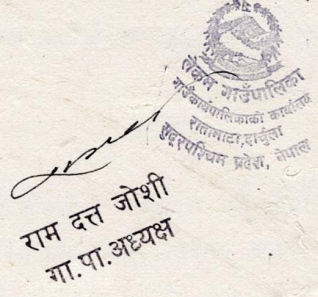 लेकम गाउँपालिका
गाउँकार्यपालिकाको कार्यालय
रातामाटा, दार्चुला
सुदूरपश्चिम प्रदेश, नेपाल
राम दत्त जोशी
गा.पा.अध्यक्ष